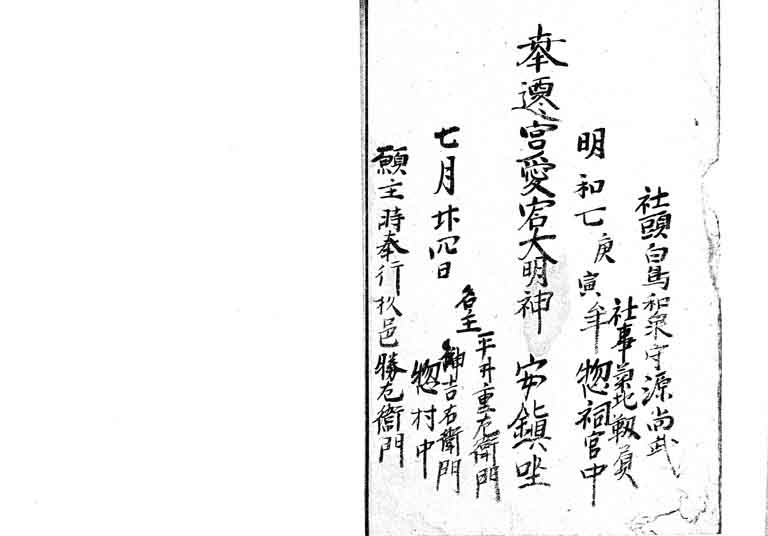 社頭白馬和泉守源尚武
社事菊地靱負
明和七庚寅年 惣祠官中
奉遷宮愛宕大明神 安鎭坐
名主 平井重左衛門
吉右衛門
七月廿四日 惣村中
願主時奉行杦邑勝左衛門